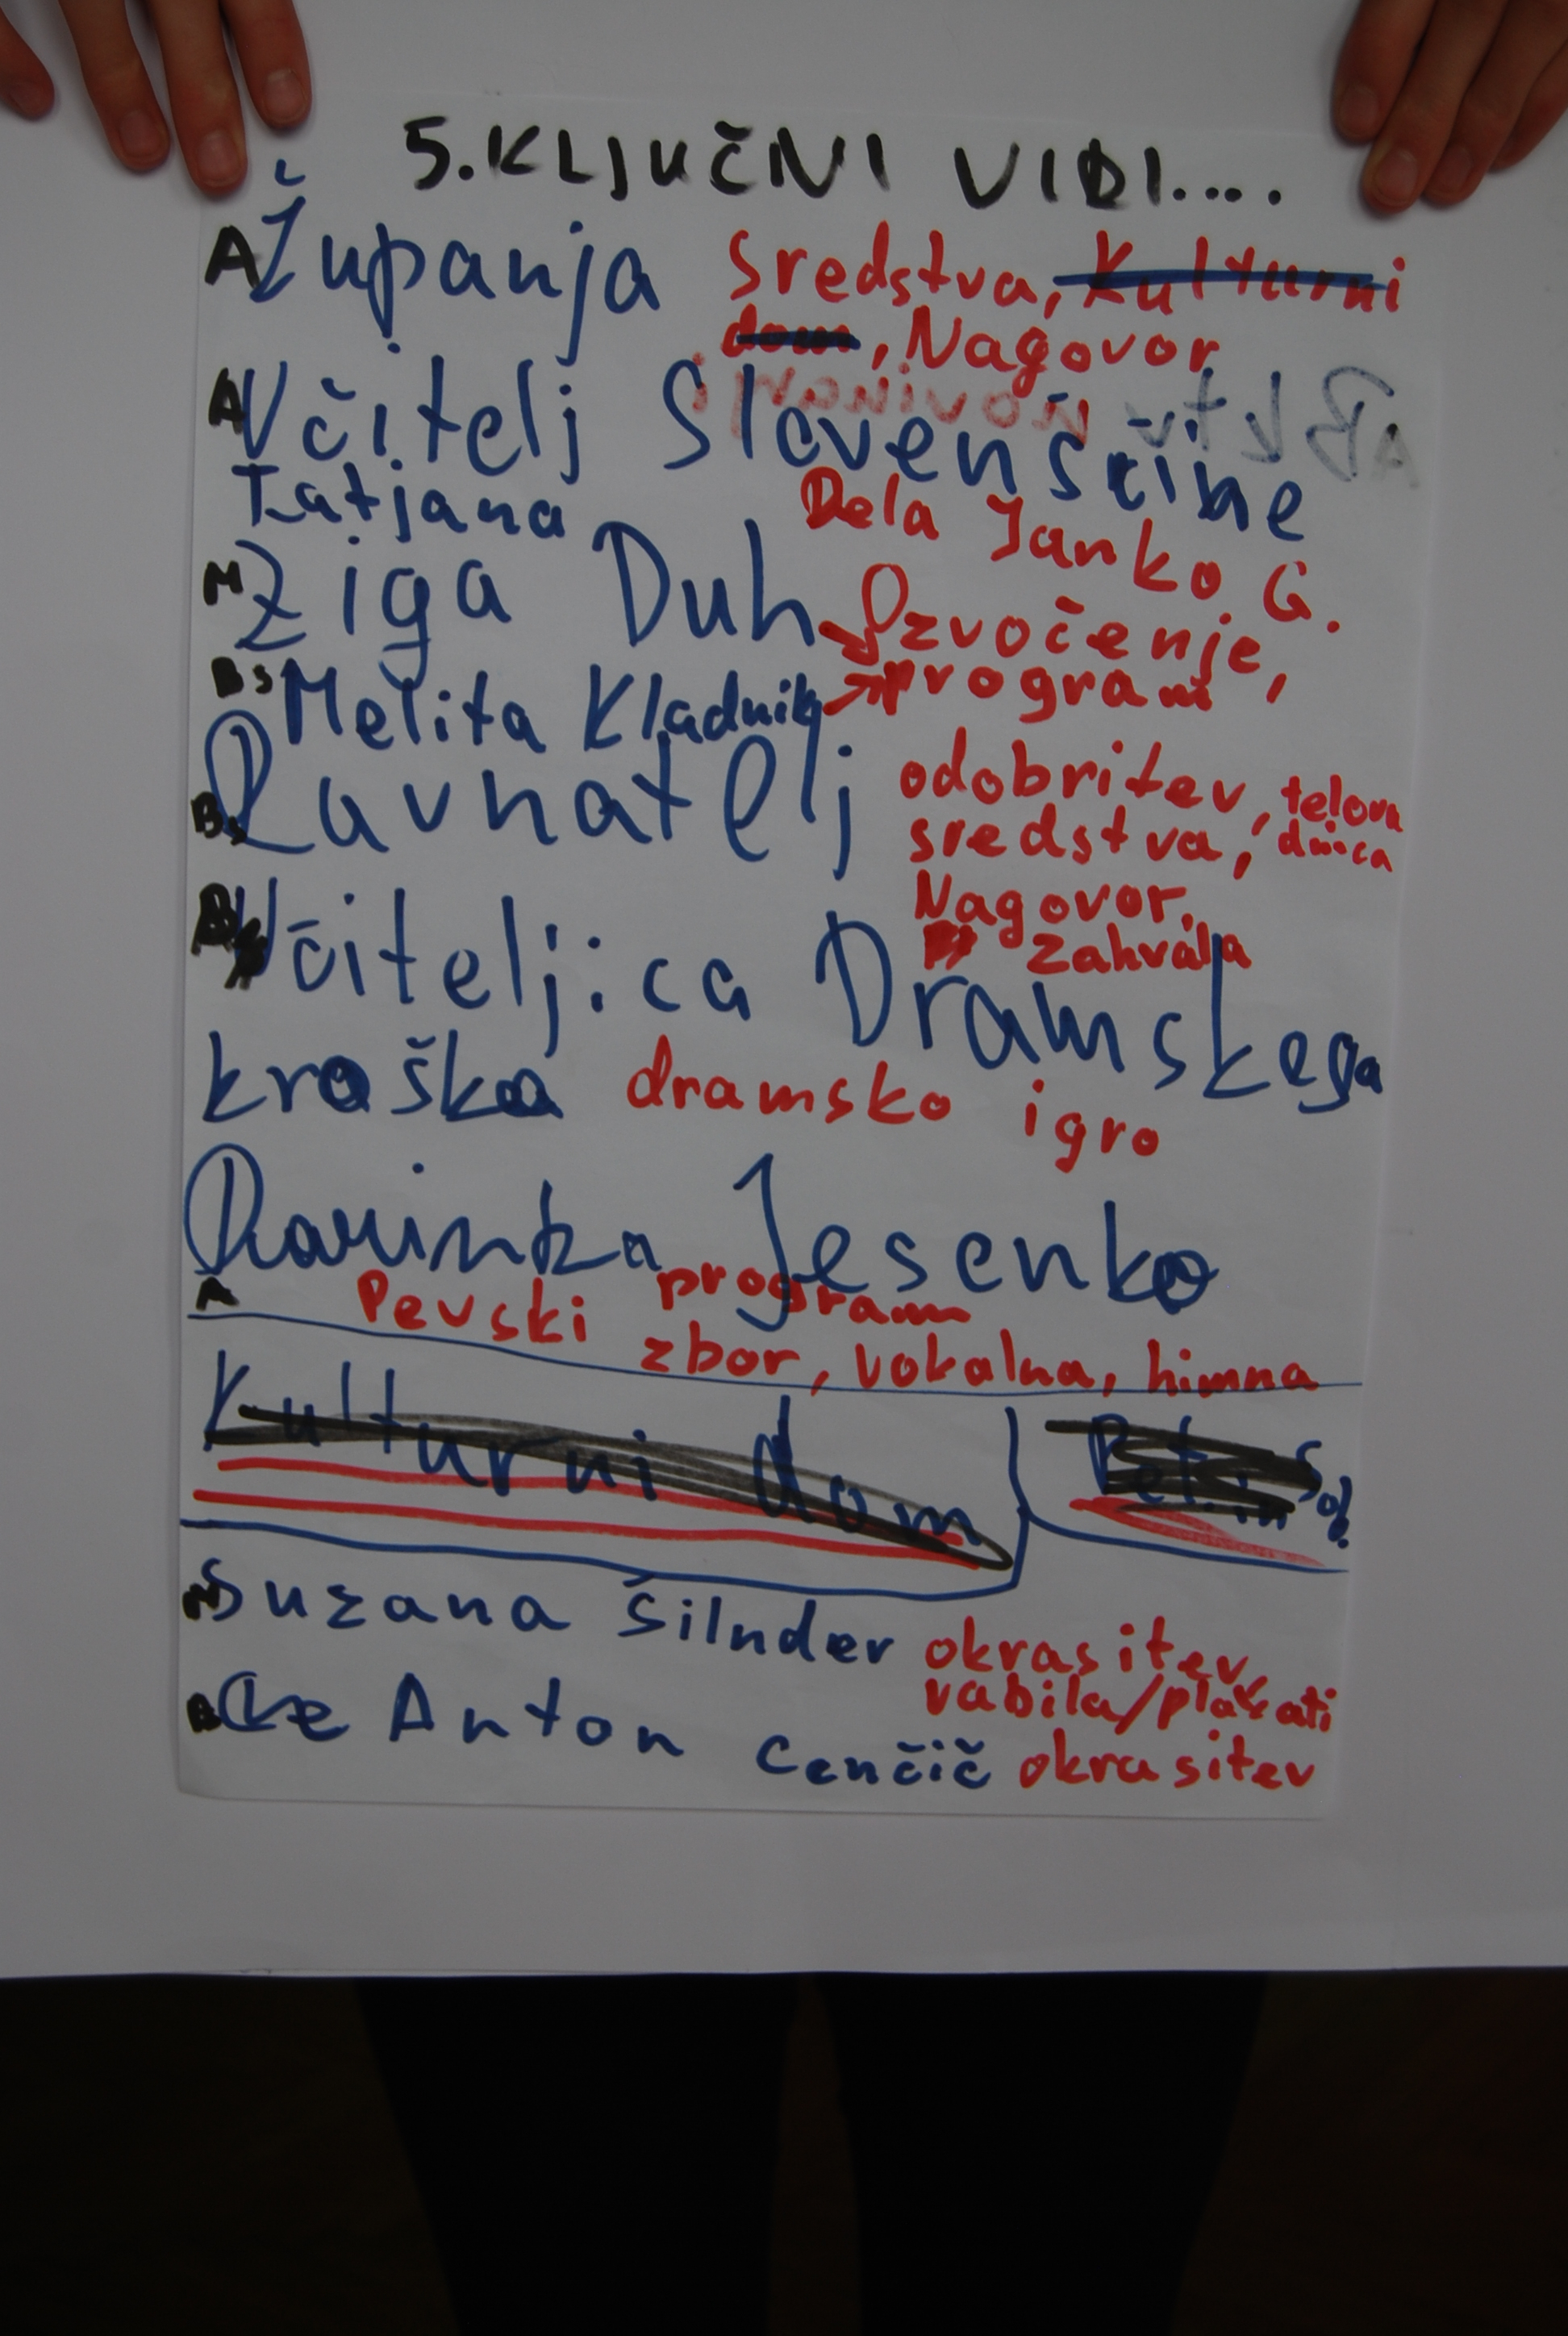 5. KLJUČNI VIDI....
A Županja Sredstva, Kulturni
dom, Nagovor
A Včitelj Slovenščine
Tatjana Dela Janko G.
M Žiga Duh Ozvočenje,
Bs Melita Kladnik program
Bs Ravnatelj odobritev, telova
sredstva, dnica
Nagovor,
zahvala
B Včiteljica Dramskega
kroška dramsko igro
Marinka Jesenko
A Pevski program
zbor, vokalna, himna
Kulturni dom
M Suzana Šilnder okrasitev
vabila/plakati
B Anton Cenčič okrasitev